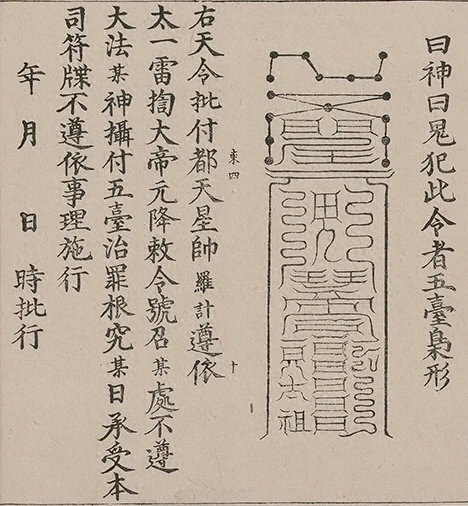 曰神曰鬼犯此令者五臺梟形
右天令批付都天星帥羅計遵依
束四
十
太一雷搊大帝元降敕令號召某處不遵
大法某神攝付五臺治罪根究某日承受本
司符牒不遵依事理施行
年月日時批行